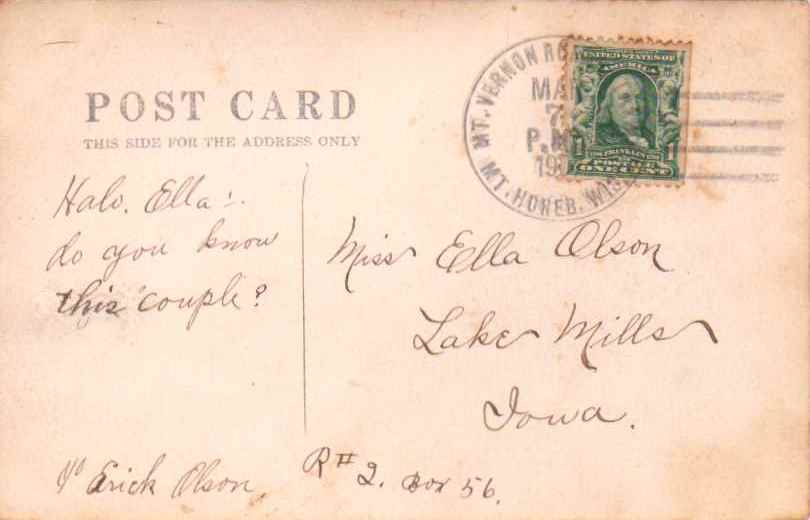 POST CARD
THIS SIDE FOR THE ADDRESS ONLY
MT. VERNON
MT. HOREB. WIS
7
P.M
UNITED STATES OF
AMERICA
1 1
POSTAGE
ONE CENT
Halo. Ella!
do you know
this couple?
Miss Ella Olson
Lake Mills
Iowa.
℅ Erick Olson,
R# 2. Box 56.